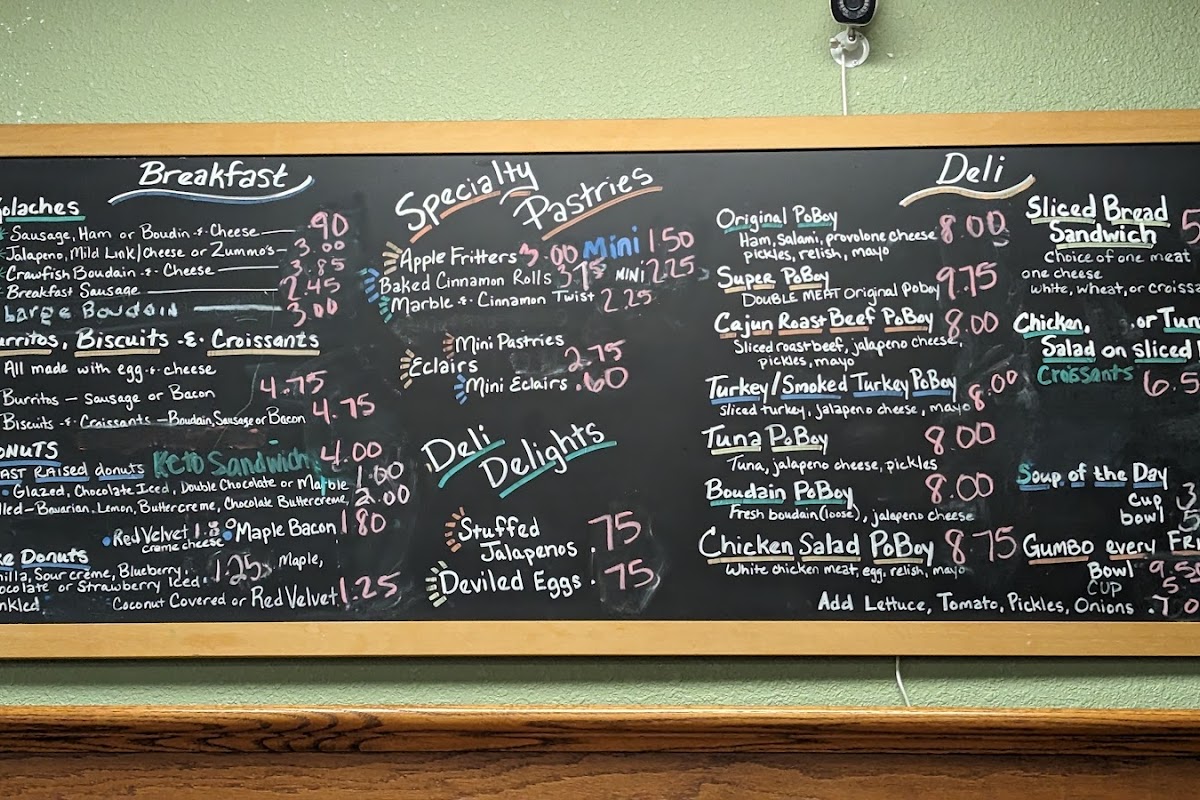 Breakfast
olaches
Sausage, Ham or Boudin & Cheese .90
Jalapeno, Mild Link/Cheese or Zummo's 3.00
Crawfish Boudain & Cheese 3.85
Breakfast Sausage 2.45
Large Boudain 3.00
urritos, Biscuits & Croissants
All made with egg & cheese
Burritos - sausage or Bacon 4.75
Biscuits & Croissants - Boudain, Sausage or Bacon 4.75
onuts
ast Raised donuts Keto Sandwich 4.00
Glazed, Chocolate Iced, Double Chocolate or Marble 1.00
lled - Bavarian, Lemon, Buttercreme, Chocolate Buttercreme, 2.00
Red Velvet creme cheese Maple Bacon 1.80
ke Donuts
nilla, Sour creme, Blueberry, 1.25 Maple,
ocolate or Strawberry Iced
nkled Coconut Covered or Red Velvet 1.25
Specialty
Pastries
Apple Fritters 3.00 Mini 1.50
Baked Cinnamon Rolls 3.75 MINI 2.25
Marble & Cinnamon Twist 2.25
Mini Pastries
Eclairs 2.75
Mini Eclairs .60
Deli
Delights
Stuffed
Jalapenos .75
Deviled Eggs .75
Deli
Original PoBoy 8.00
Ham, Salami, provolone cheese
pickles, relish, mayo
Super PoBoy 9.75
DOUBLE MEAT Original Poboy
Cajun Roast Beef PoBoy 8.00
Sliced roast beef, jalapeno cheese,
pickles, mayo
Turkey/Smoked Turkey PoBoy 8.00
Sliced turkey, jalapeno cheese, mayo
Tuna PoBoy 8.00
Tuna, jalapeno cheese, pickles
Boudain PoBoy 8.00
Fresh boudain (loose), jalapeno cheese
Chicken Salad PoBoy 8.75
White chicken meat, egg, relish, mayo
Sliced Bread
Sandwich 5
Choice of one meat
one cheese
White, Wheat, or croissa
Chicken, , or Tun
Salad on sliced
Croissants 6.5
Soup of the Day
Cup 3
bowl 5
Gumbo every FRI
Bowl 9.50
CUP 5
Add Lettuce, Tomato, Pickles, Onions .70